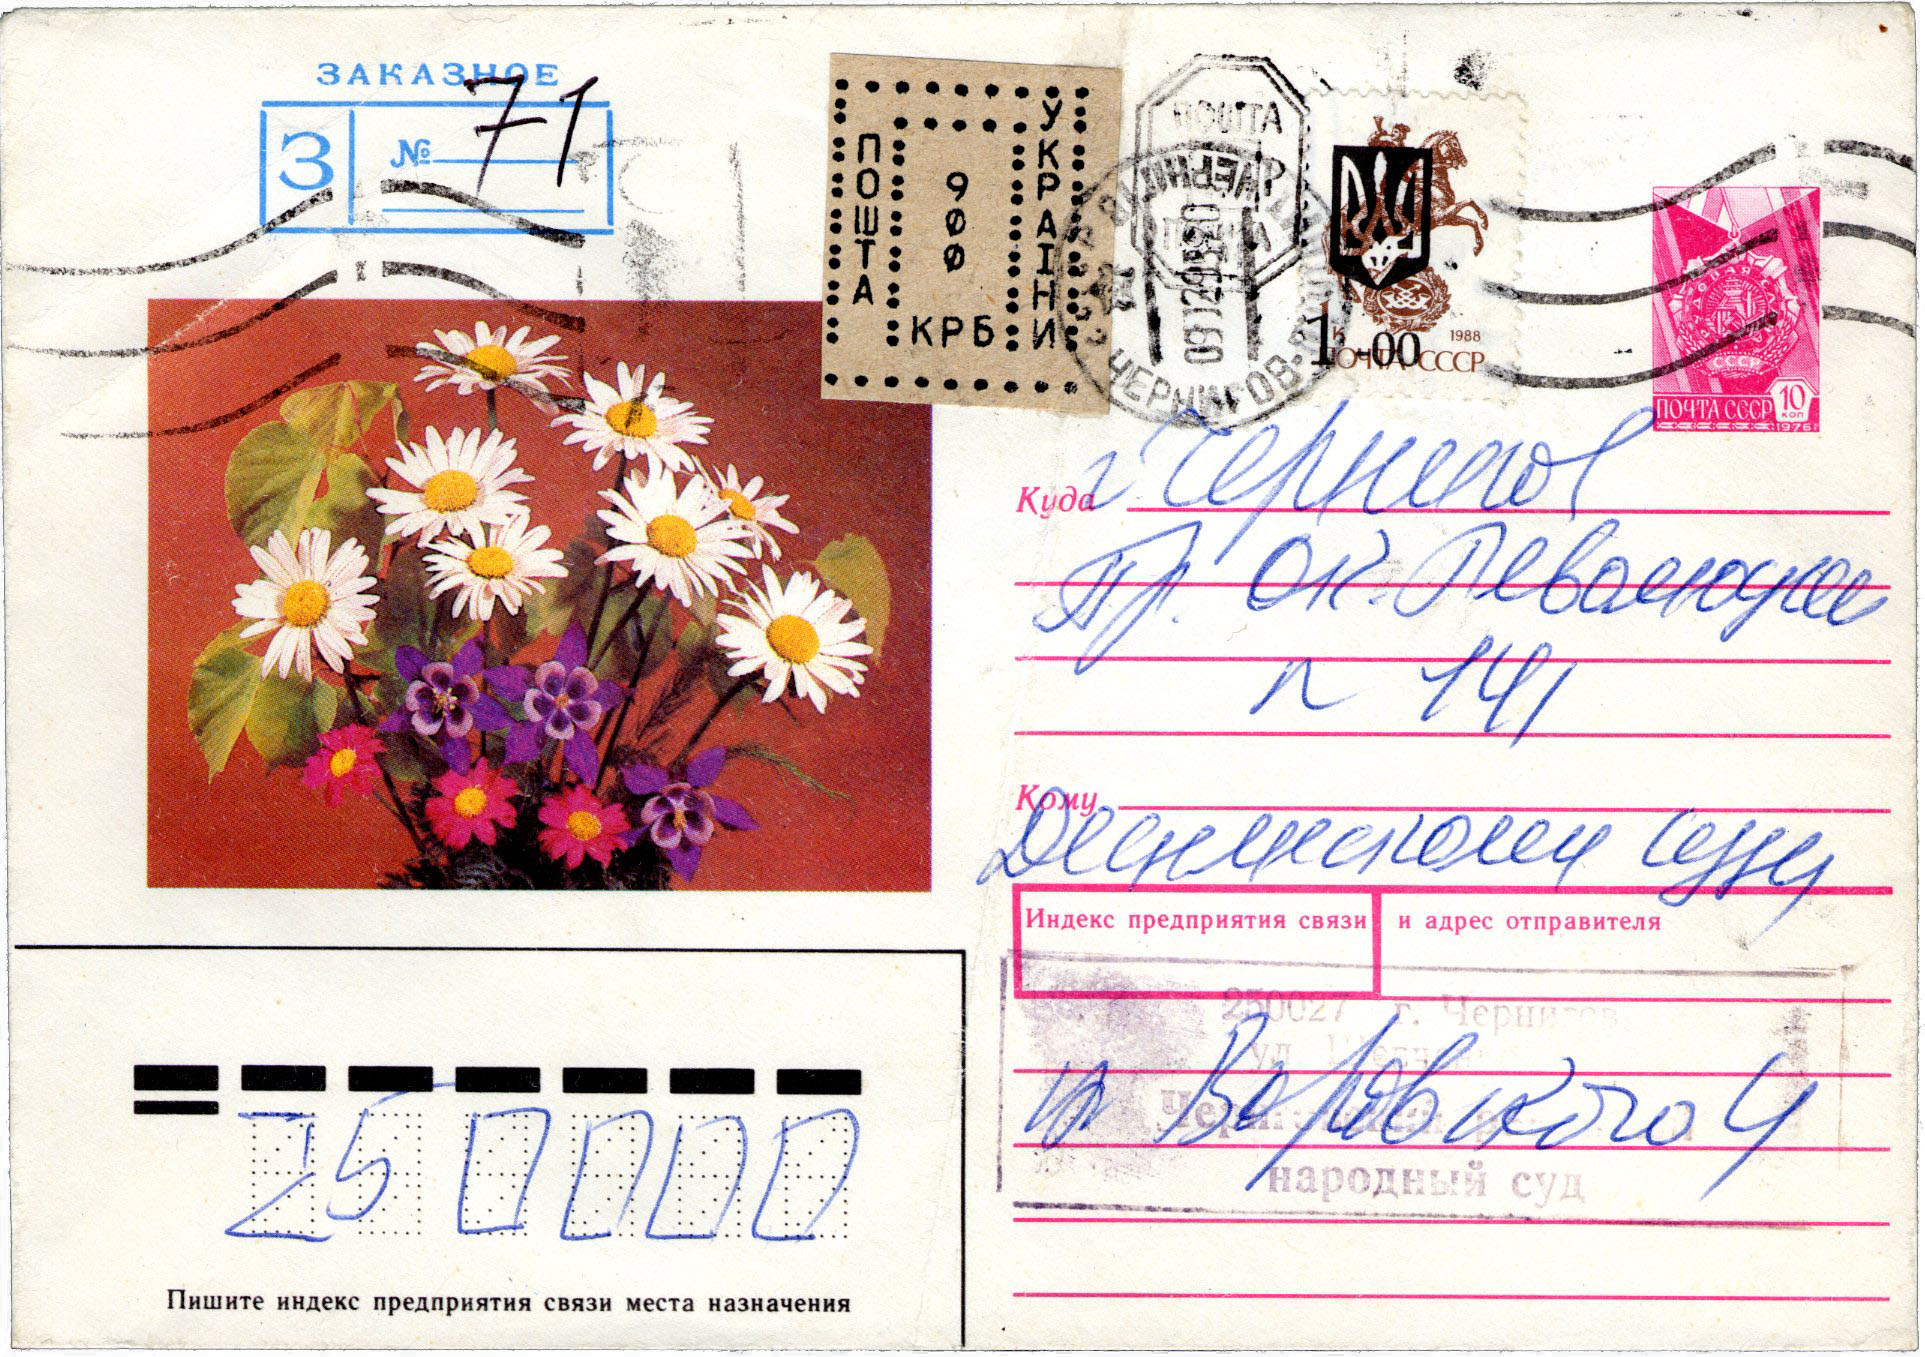 ЗАКАЗНОЕ
З № 71
ПОШТА
900
КРБ
УКРАЇНИ
ПОШТА
ЧЕРНІГІВ
ЧЕРНИГОВ
1-00
1988
ПОЧТА СССР
ТРУДОВАЯ СЛАВА
СССР
ПОЧТА СССР 10 коп
1976
Куда г Чернигов
пр. Ок. Революции
141
Кому
Деснянскому суду
Индекс предприятия связи и адрес отправителя
250027 г. Чернигов
ул
Воровского 4
народный суд
250000
Пишите индекс предприятия связи места назначения